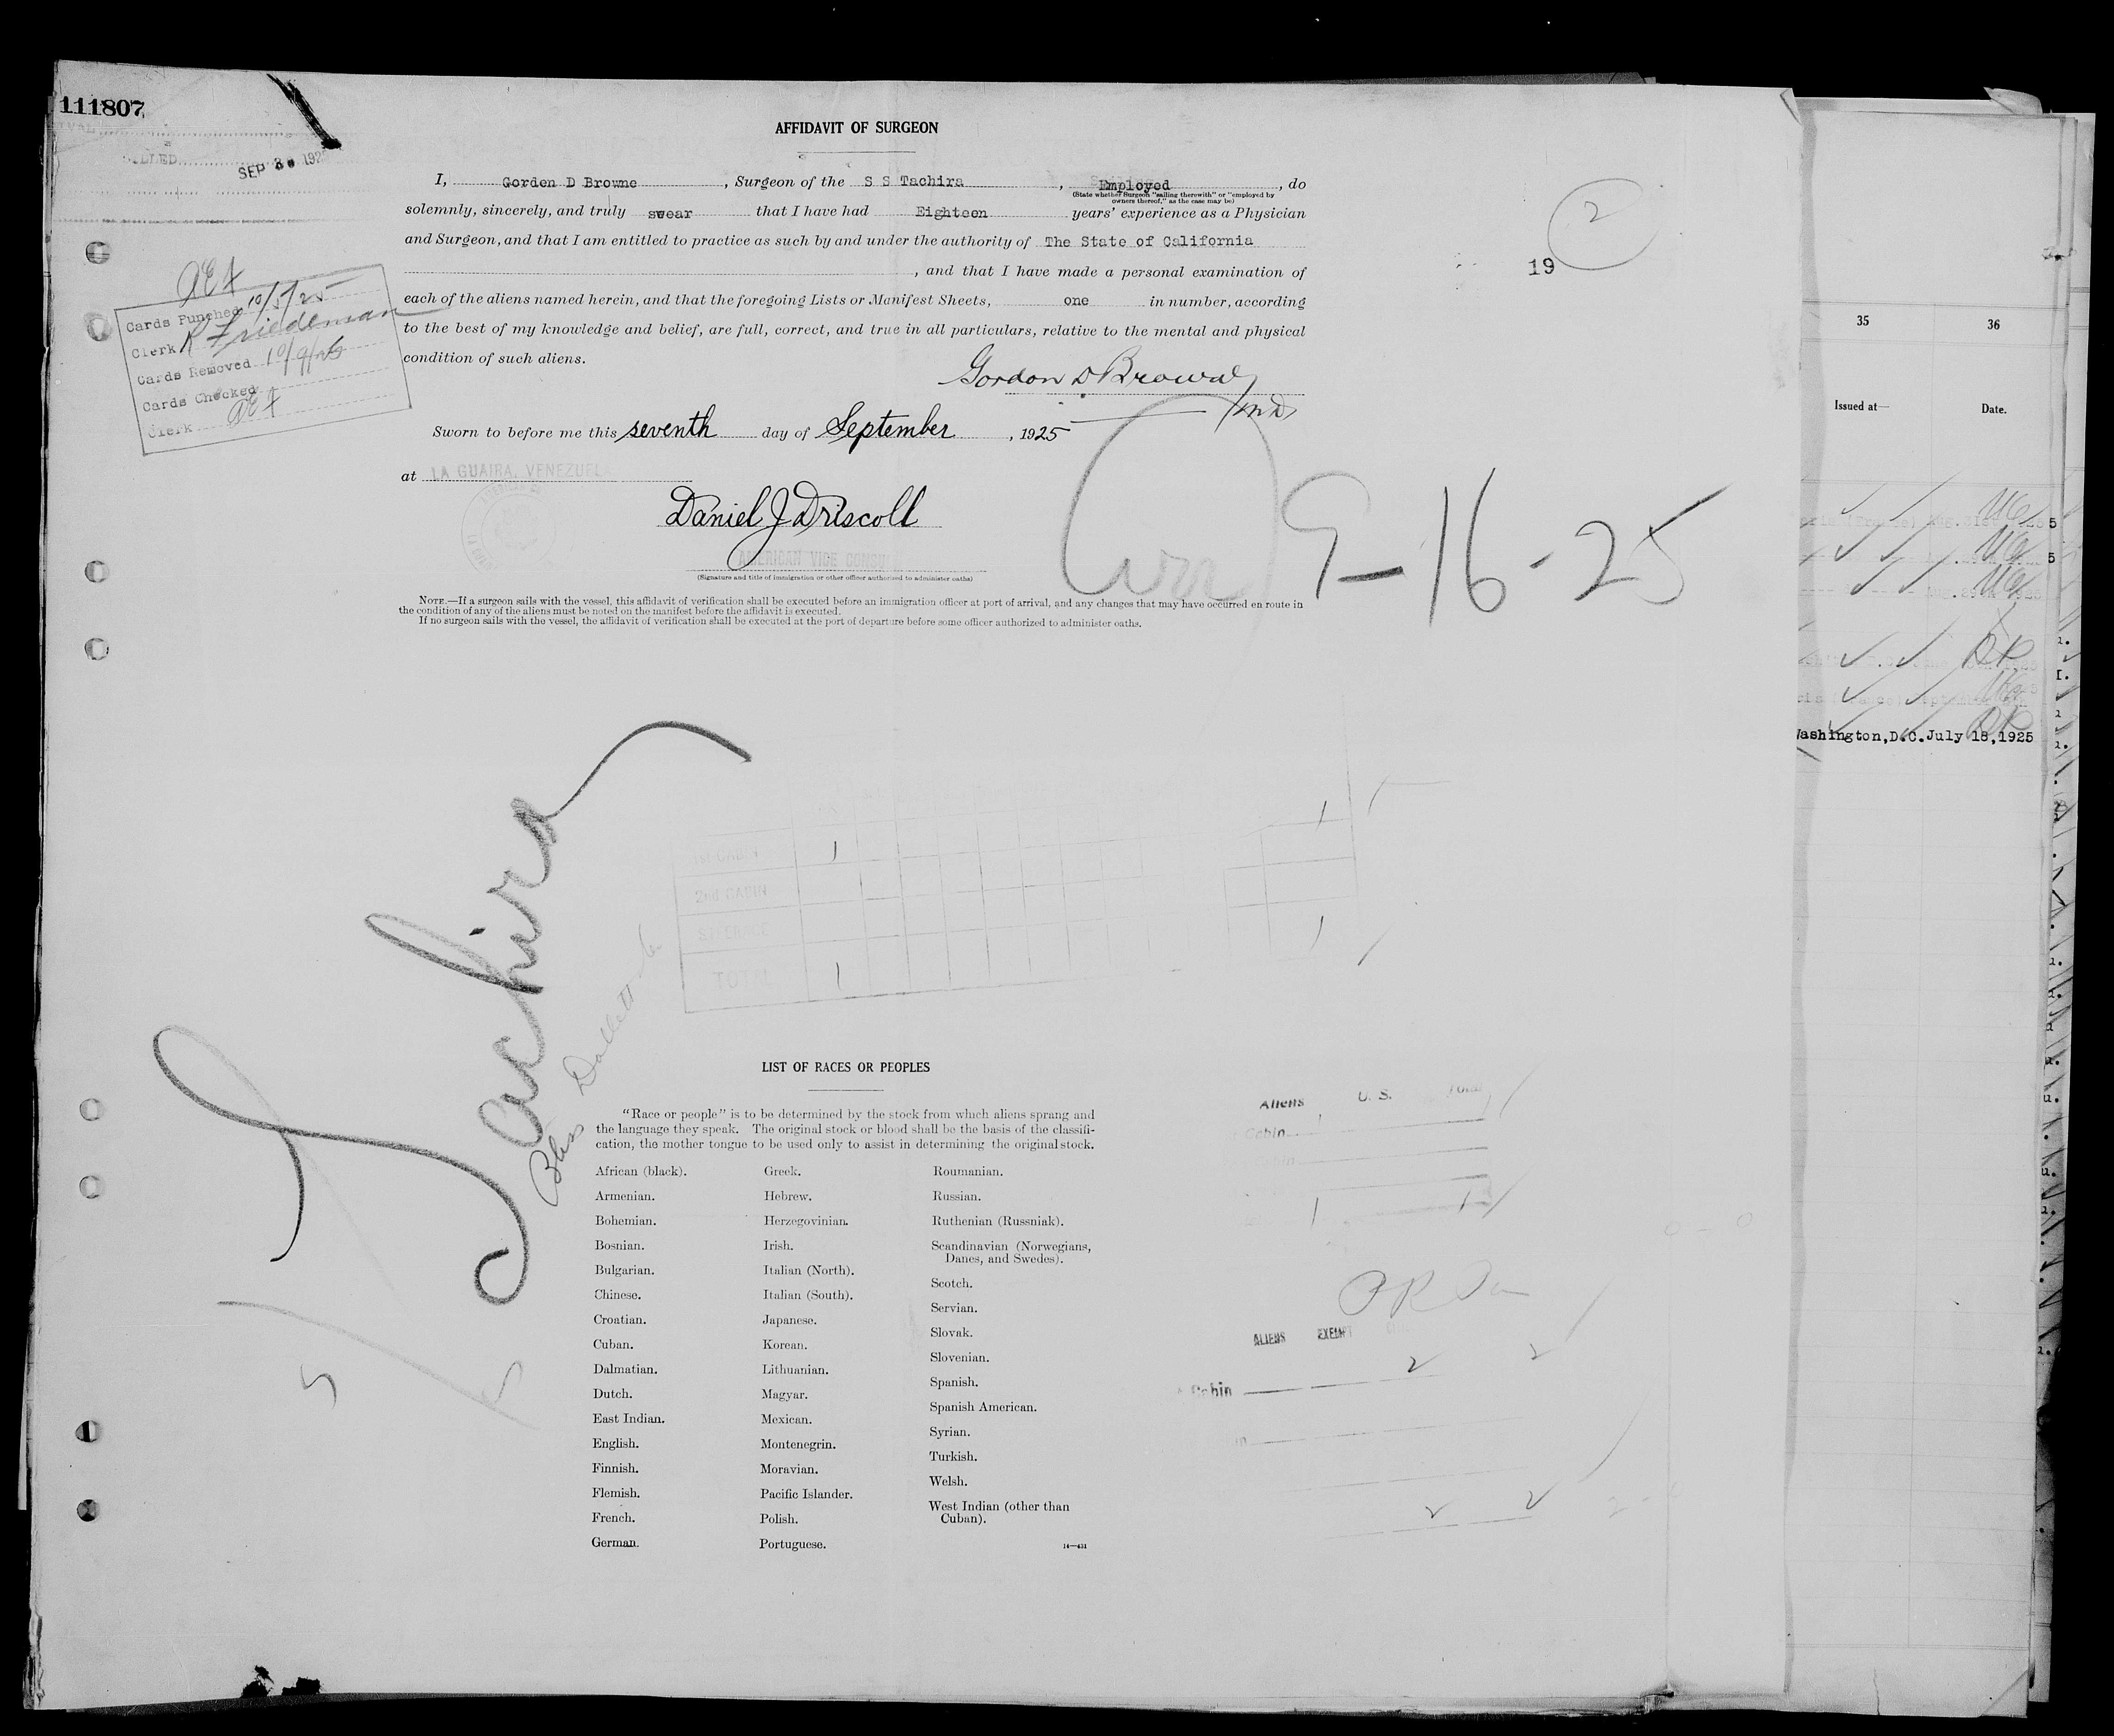 111807
SEP 3 192
AFFIDAVIT OF SURGEON
I, Gorden D Browne, Surgeon of the S S Tachira, Employed, do
(State whether Surgeon "sailing therewith" or "employed by
owners thereof," as the case may be)
solemnly, sincerely, and truly swear that I have had Eighteen years' experience as a Physician
and Surgeon, and that I am entitled to practice as such by and under the authority of The State of California
, and that I have made a personal examination of
each of the aliens named herein, and that the foregoing Lists or Manifest Sheets, one in number, according
to the best of my knowledge and belief, are full, correct, and true in all particulars, relative to the mental and physical
condition of such aliens.
Gordon D Browne
MD
Sworn to before me this seventh day of September, 1925
at LA GUAIRA, VENEZUELA
Daniel J Driscoll
AMERICAN VICE CONSUL
(Signature and title of immigration or other officer authorized to administer oaths)
NOTE.—If a surgeon sails with the vessel, this affidavit of verification shall be executed before an immigration officer at port of arrival, and any changes that may have occurred en route in
the condition of any of the aliens must be noted on the manifest before the affidavit is executed.
If no surgeon sails with the vessel, the affidavit of verification shall be executed at the port of departure before some officer authorized to administer oaths.
Cards Punched 10/5/25
Clerk R Friedeman
Cards Removed 10/9/25
Cards Checked
Clerk
2
19
9-16-25
Tachira
Bliss Dallett Co
1st CABIN 1 1
2nd CABIN
STEERAGE 1
TOTAL 1
LIST OF RACES OR PEOPLES
"Race or people" is to be determined by the stock from which aliens sprang and
the language they speak. The original stock or blood shall be the basis of the classifi-
cation, the mother tongue to be used only to assist in determining the original stock.
African (black).
Armenian.
Bohemian.
Bosnian.
Bulgarian.
Chinese.
Croatian.
Cuban.
Dalmatian.
Dutch.
East Indian.
English.
Finnish.
Flemish.
French.
German.
Greek.
Hebrew.
Herzegovinian.
Irish.
Italian (North).
Italian (South).
Japanese.
Korean.
Lithuanian.
Magyar.
Mexican.
Montenegrin.
Moravian.
Pacific Islander.
Polish.
Portuguese.
Roumanian.
Russian.
Ruthenian (Russniak).
Scandinavian (Norwegians,
Danes, and Swedes).
Scotch.
Servian.
Slovak.
Slovenian.
Spanish.
Spanish American.
Syrian.
Turkish.
Welsh.
West Indian (other than
Cuban).
14—431
Aliens U. S. Total
Cabin
Cabin
1 1
ALIENS EXEMPT
2 2
Cabin
2 2
5
35 36
Issued at— Date.
Washington, D.C. July 18, 1925